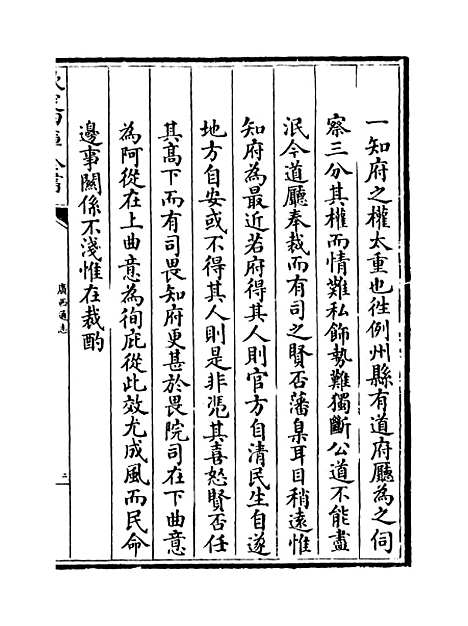 一知府之權太重也徃例州縣有道府廳為之伺
察三分其權而情難私飾勢難獨斷公道不能盡
泯今道廳奉裁而有司之賢否藩臬耳目稍遠惟
知府為最近若府得其人則官方自清民生自遂
地方自安或不得其人則是非憑其喜怒賢否任
其髙下而有司畏知府更甚於畏院司在下曲意
為阿從在上曲意為徇庇從此效尤成風而民命
邊事關係不淺惟在裁酌
廣西通志
二